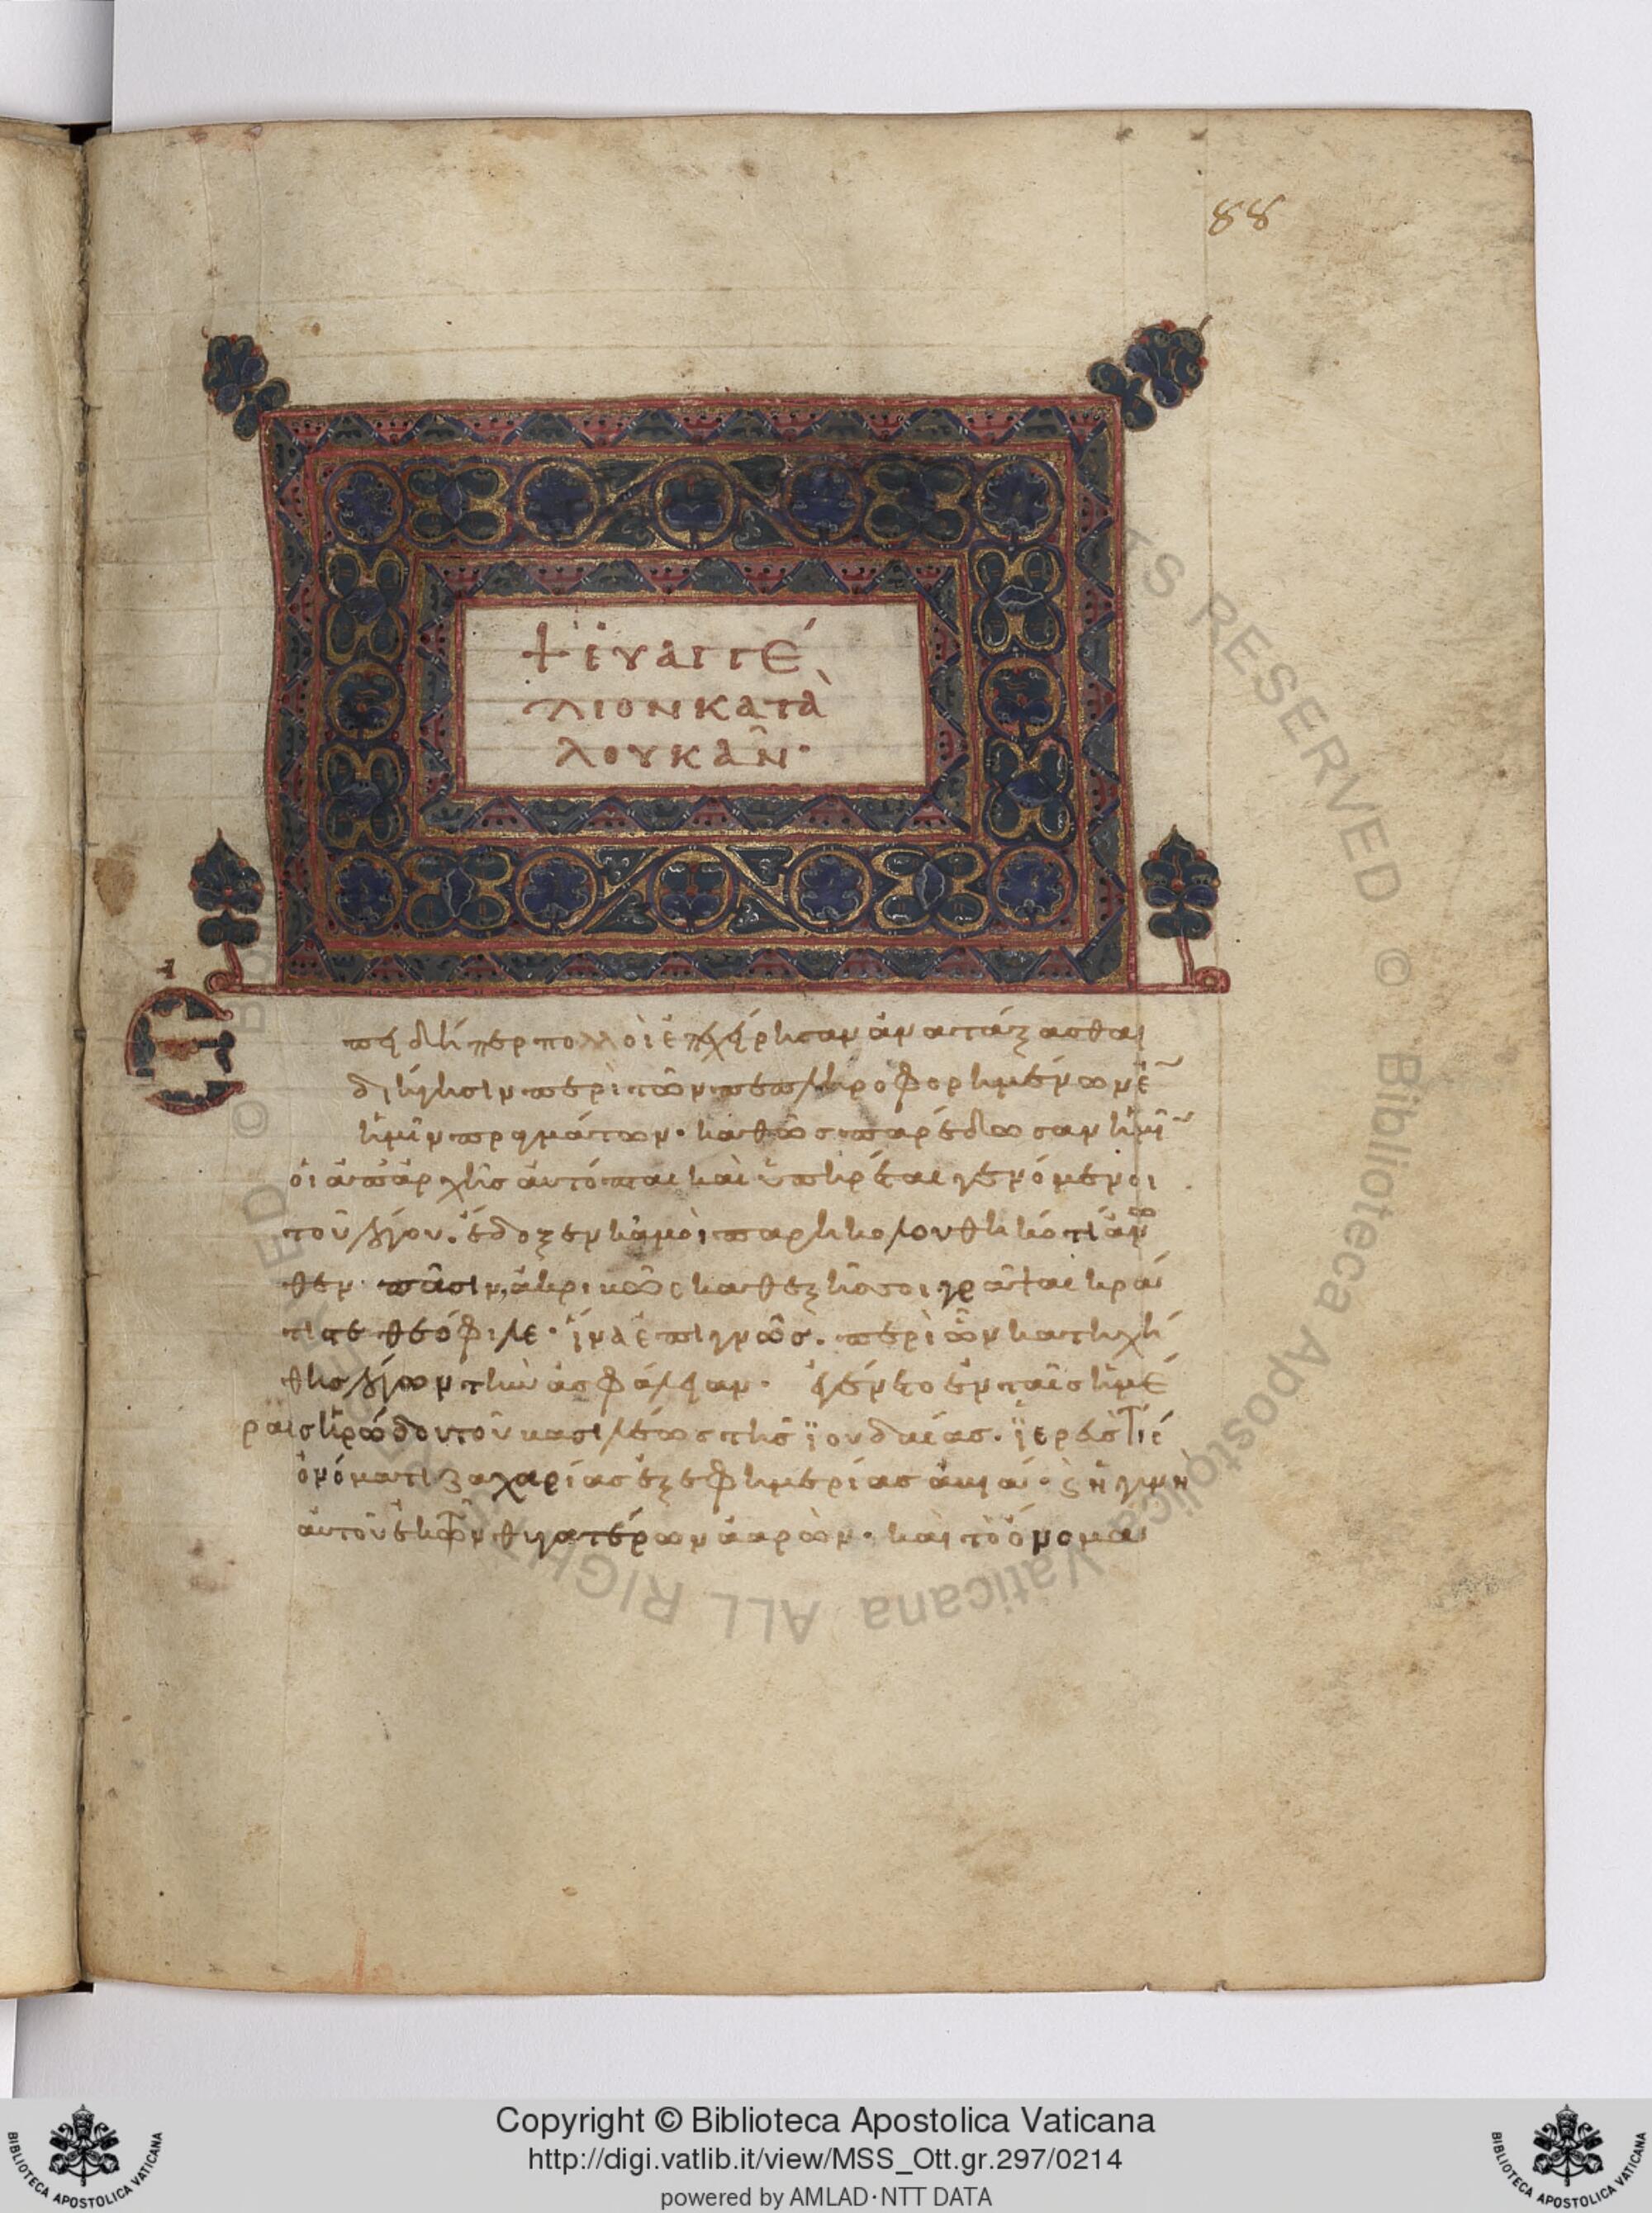 88
+ ἐυαγγέ
λιον κατὰ
λουκᾶν·
Ἐπειδήπερ πολλοὶ ἐπεχείρησαν ἀνατάξασθαι
διήγησιν περὶ τῶν πεπληροφορημένων ἐ̅
ἡμῖν πραγμάτων· καθὼς παρέδωσαν ἡμῖ̅
οἱ ἀπἀρχῆς αὐτόπται καὶ ὑπηρέται γενόμενοι
τοῦ λόγου. ἔδοξεν κἀμοὶ παρηκολουθηκότι ἄνω
θεν πᾶσιν, ἀκριβῶς καθεξῆς σοι γράψαι κρά
τιστε θεόφιλε· ἵνα ἐπιγνῶς. περὶ ὧν κατηχή
θης λόγων τὴν ἀσφάλειαν· ἐγένετο ἐν ταῖς ἡμέ
ραις ἡρώδου τοῦ βασιλέως τῆς ϊουδαίας. ϊερεύς τις
ὀνόματι ζαχαρίας ἐξ ἐφημερίας ἀβιά· ϗ ἡ γυνὴ
αὐτοῦ ἐκ τῶν θυγατέρων ἀαρών· καὶ τὸ ὄνομα
Copyright © Biblioteca Apostolica Vaticana
http://digi.vatlib.it/view/MSS_Ott.gr.297/0214
powered by AMLAD·NTT DATA
BIBLIOTECA APOSTOLICA VATICANA
BIBLIOTECA APOSTOLICA VATICANA
© Biblioteca Apostolica Vaticana ALL RIGHTS RESERVED